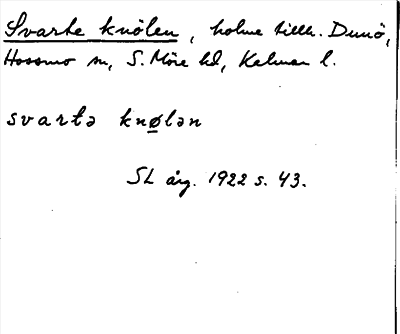 Svarte knölen, holme tillh. Dunö,
Hossmo sn, S. Möre hd, Kalmar l.
svartə knølən
SL årg. 1922 s. 43.